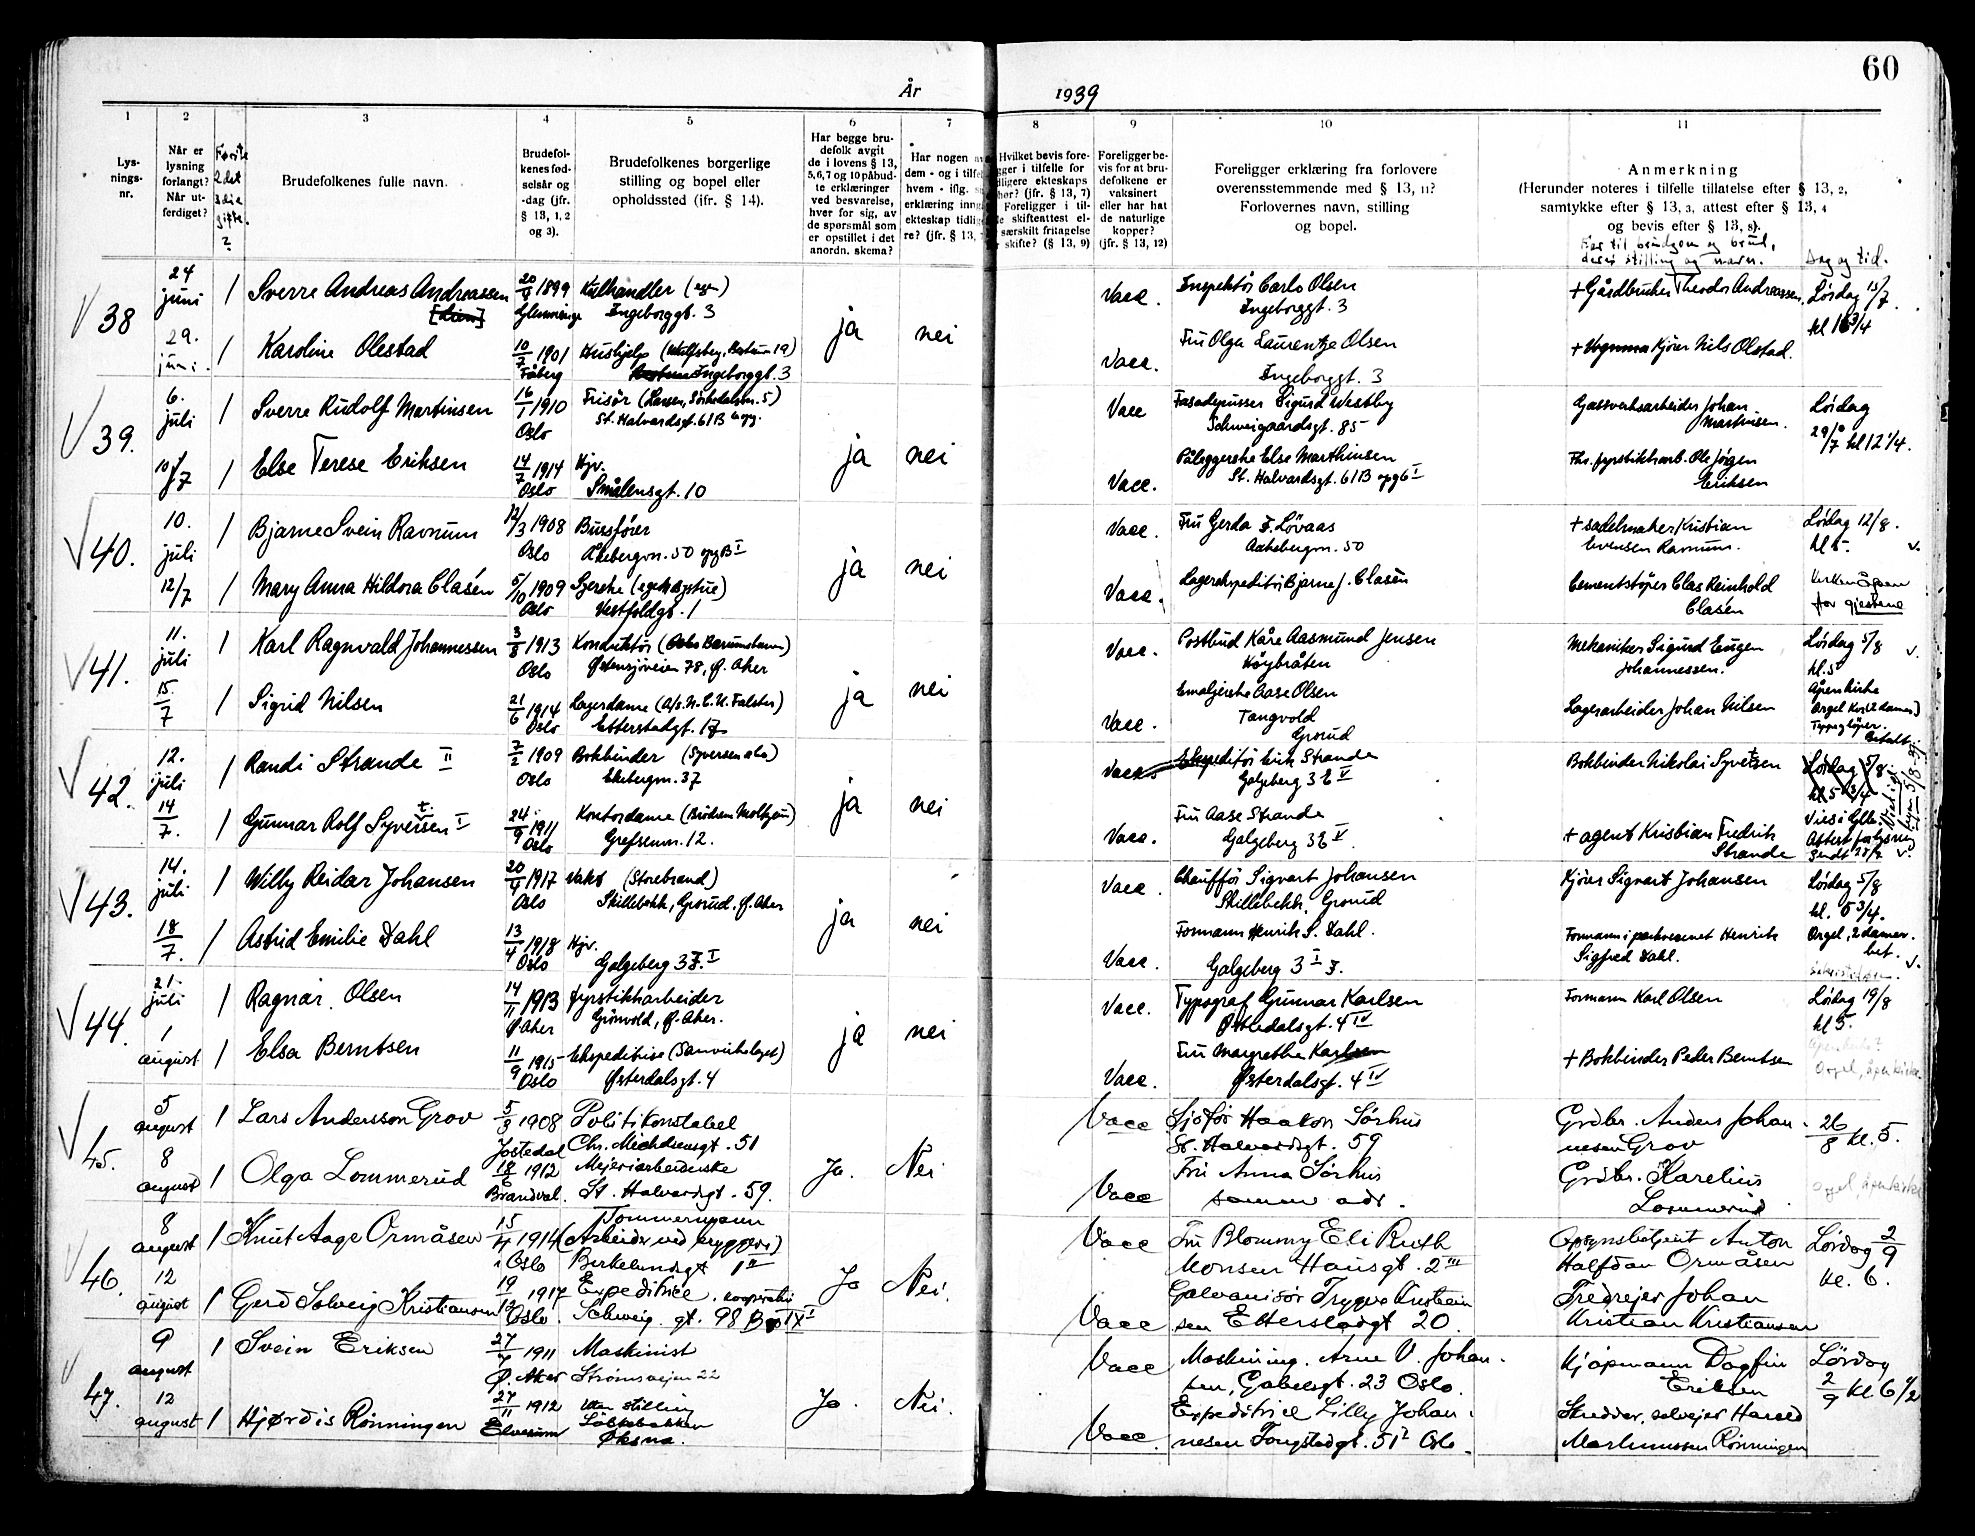 60
År 1939
1 2 3 4 5 6 7 8 9 10 11
Lys-
nings-
nr.
Når er
lysning
forlangt?
Når ut-
ferdiget?
Første
2det
3die
gifte
?
Brudefolkenes fulle navn.
Brudefol-
kenes fød-
selsår og
-dag (jfr.
§ 13, 1, 2
og 3).
Brudefolkenes borgerlige
stilling og bopel eller
opholdssted (jfr. § 14).
Har begge bru-
defolk avgit
de i lovens § 13,
5, 6, 7 og 10 påbud-
te erklæringer
ved besvarelse,
hver for sig, av
de spørsmål som
er opstillet i det
anordn. skema?
Har nogen av
dem - og i tilfel
hvem - iflg. si
erklæring inng
ekteskap tidlig
re? (jfr. § 13,
Hvilket bevis fore-
gger i tilfelle for
dligere ekteskaps
hør? (jfr. § 13, 7)
Foreligger i til-
le skifteattest el-
særskilt fritagelse
r skifte? (§ 13, 9)
Foreligger be-
vis for at bru-
defolkene er
vaksinert
eller har hat
de naturlige
kopper?
(jfr. § 13, 12)
Foreligger erklæring fra forlovere
overensstemmende med § 13, 11?
Forlovernes navn, stilling
og bopel.
Anmerkning
(Herunder noteres i tilfelle tillatelse efter § 13, 2,
samtykke efter § 13, 3, attest efter § 13, 4
og bevis efter § 13, 8).
Far til brudgom og brud,
deres stilling og navn.
Dag og tid.
38 24 juni 1 Sverre Andreas Andreassen 20/9 1899 Kulhandler (egen) Vacc. Inspektör Carlo Olsen + Gårdbruker Theodor Andreassen. Lördag 15/7
[Lien] Glemminge Ingeborggt. 3 ja nei Ingeborggt. 3 kl 16 3/4
29. juni 1 Karoline Olestad 10/7 1901 Hushjelp Vacc. Fru Olga Laurentze Olsen + Vognmann Kjörer Nils Olstad.
Fåberg Ingeborggt. 3 Ingeborggt. 3
39. 6. juli 1 Sverre Rudolf Martinsen 16/1 1910 Frisör (Larsen, Sörkedalsvn. 5) Vacc Fasadepusser Sigurd Westby Gassverksarbeider Johan Martinsen. Lördag
Oslo St. Halvardsgt. 61 B ja nei Schweigaardsgt. 85 29/7 kl 12 1/4.
10/7 1 Else Terese Eriksen 14/7 1914 Hjv. Vacc. Påleggerske Else Marthinsen Fhv. fyrstikkarb. Ole Jörgen Eriksen
Oslo Smålensgt. 10 St. Halvardsgt. 61 B opg 6 I
40. 10. juli 1 Bjarne Svein Ravnum 12/3 1908 Bussförer Vacc. Fru Gerda F. Lövaas + sadelmaker Kristian Evensen Ravnum. Lördag 12/8.
Oslo Åkebergvn. 50 opg B I ja nei Aakebergvn. 50 kl 5. v.
12/7 1 Mary Anna Hildora Clasén 5/10 1909 Syerske (egen systue) Vacc. Lagerekspeditör Bjarne J. Clasén Cementstöper Clas Reinhold Clasén Kirken åpen
Oslo Vestfoldgt. 1 for gjestene
41. 11. juli 1 Karl Ragnvald Johannessen 3/8 1913 Konduktör (Oslo Bærumsbanen) Vacc. Postbud Kåre Aasmund Jensen Mekaniker Sigurd Eugen Johannessen. Lördag 5/8 v.
Oslo Östensjöveien 78, Ø. Aker ja nei Höybråten kl. 5
15/7 1 Sigrid Nilsen 21/6 1914 Lagerdame (A/s. N. C. U. Falster) Vacc. Emaljerske Aase Olsen Lagerarbeider Johan Nilsen Åpen kirke
Oslo Etterstadgt. 17 Tangvold Grorud Orgel
42. 12. juli 1 Randi Strande II 7/2 1909 Bokbinder Vacc. Ekspeditör Erik Strande Bokbinder Nikolai Syvertsen Lördag 5/8
Oslo Ekebergvn. 37 ja nei Galgeberg 3 V kl 5 3/4
14/7. 1 Gunnar Rolf Syvertsen I 24/9 1911 Kontordame Vacc. Fru Aase Strande + agent Kristian Fredrik Strande
Oslo Grefsenvn. 12. Galgeberg 3 V.
43. 14. juli 1 Willy Reidar Johansen 20/4 1917 Vakt (Storebrand) Vacc. Chaufför Sigvart Johansen Kjörer Sigvart Johansen Lördag 5/8
Oslo Skillebekk, Grorud, Ø. Aker ja nei Skillebekk, Grorud kl. 5 3/4.
18/7. 1 Astrid Emilie Dahl 13/4 1918 Hjv. Vacc. Formann Henrik S. Dahl. Formann i parkvesenet Henrik Sigfred Dahl. Orgel, 2 damer.
Oslo Galgeberg 3 F. I Galgeberg 3 I F. bet. v.
44. 21. juli 1 Ragnar Olsen 14/11 1913 fyrstikkarbeider Vacc. Typograf Gunnar Karlsen Formann Karl Olsen Lördag 19/8
Ø Aker Grönvold, Ø. Aker. ja nei Østerdalsgt. 4 IV kl 5.
1 august 1 Elsa Berntsen 11/9 1915 Ekspeditrise Vacc. Fru Margrethe Karlsen + Bokbinder Peder Berntsen
Oslo Østerdalsgt. 4 Østerdalsgt. 4 IV Orgel, åpen kirke.
45. 5 august 1 Lars Andersson Grov 5/3 1908 Politikonstabel Vacc Sjåför Haakon Sörhus Grdbr. Anders Johan-
Jostedal Chr. Michelsensgt. 51 St. Halvardsgt. 59 nesen Grov 26/8 kl. 5.
8 august 1 Olga Lommerud 18/6 1912 Meieriarbeiderske Ja. Nei Vacc Fru Anna Sörhus Grdbr. Karelius
Brandval. St. Halvardsgt. 59. samme adr. Lommerud Orgel, åpen kirke
46. 8 august 1 Knut Aage Ormåsen 15/4 1914 Tömmermann (Arbeider ved bryggeri) Vacc Fru Blommy Eli Ruth Opsynsbetjent Anton Lördag 2/9
i Oslo Birkelundsgt 1 II Monsen Hausgt. 2 III Halfdan Ormåsen kl. 6.
12 august 1 Gerd Solveig Kristiansen 19/12 1917 Expeditrice, Ja Nei. Vacc Galvanisör Trygve Kristian- Johan
Oslo. Schweig. gt. 98 B sen Etterstadgt 20. Kristian Kristiansen
47. 9 august 1 Svein Eriksen 27/4 1911 Maskinist Vacc Maskining. Arne V. Johan- Kjöpmann Dagfin Lördag
Ø. Aker Strömsveien 22 sen, Gabelsgt. 23 Oslo. Eriksen 2/9 kl 6 1/2
12 august 1 Hjørdis Rönningen 27/11 1912 Uten stilling Ja. Nei. Vacc. Expeditrice Lilly Johan- Skredder, selveier Harald
Elverum Øksna. nesen Tongstadgt. 51 I Oslo. Martinussen Rönningen